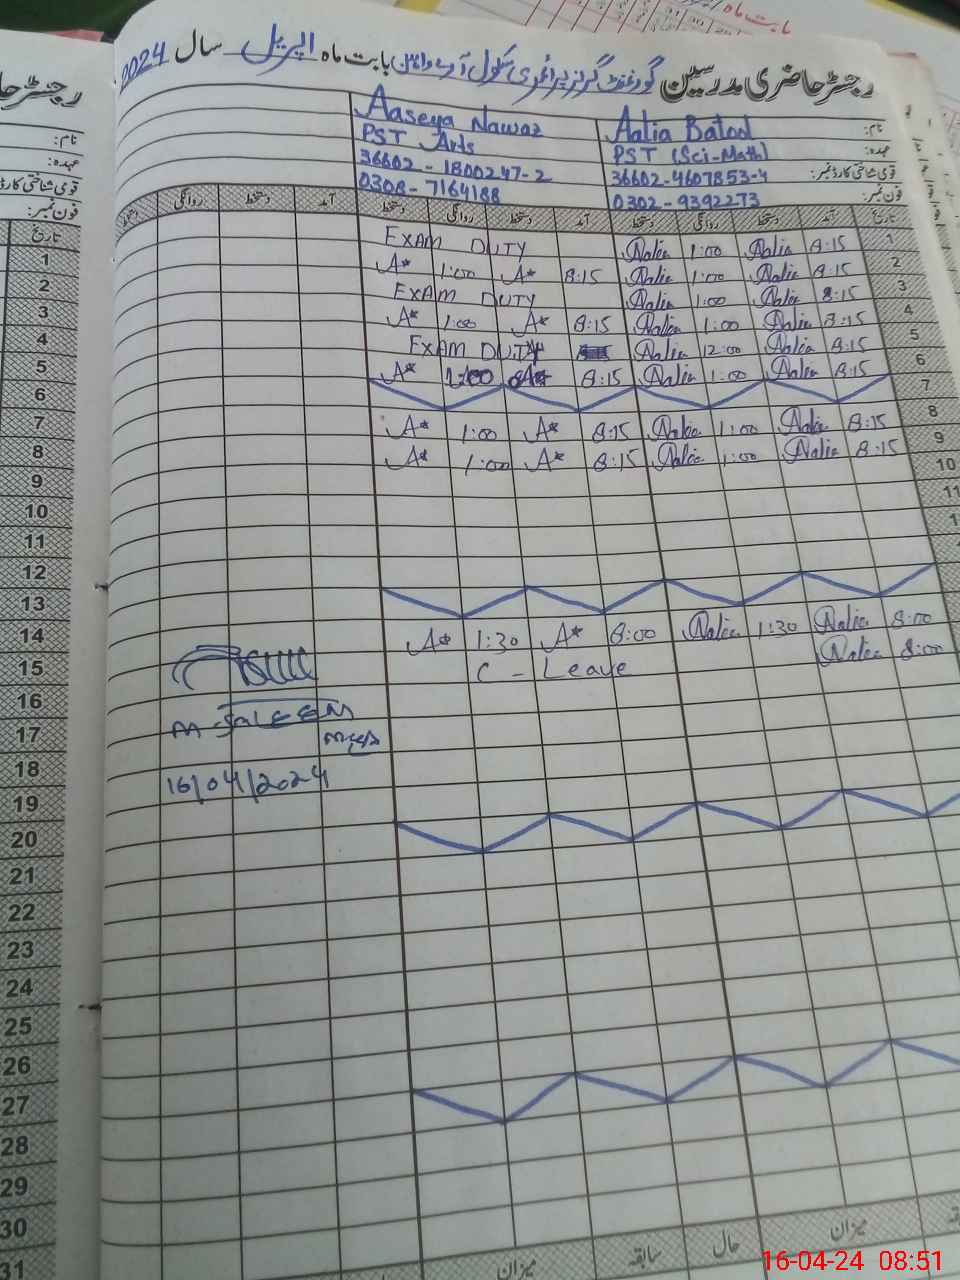 بابت ماہ
رجسٹر حاضری مدرسین گورنمنٹ گرلز پرائمری سکول بابت ماہ اپریل سال 2024
نام: Aalia Batool Aaseya Nawaz
عہدہ: PST (Sci-Math) PST Arts
قومی شناختی کارڈ نمبر: 36602-4607853-4 36602-1800247-2
فون نمبر: 0302-9392273 0308-7164188
تاریخ آمد دستخط روانگی دستخط آمد دستخط روانگی دستخط آمد دستخط روانگی دستخط
1 8:15 Aalia 1:00 Aalia EXAM DUTY
2 8:15 Aalia 1:00 Aalia 8:15 A* 1:00 A*
3 8:15 Aalia 1:00 Aalia EXAM DUTY
4 8:15 Aalia 1:00 Aalia 8:15 A* 1:00 A*
5 8:15 Aalia 12:00 Aalia EXAM DUTY
6 8:15 Aalia 1:00 Aalia 8:15 A* 1:00 A*
7
8 8:15 Aalia 1:00 Aalia 8:15 A* 1:00 A*
9 8:15 Aalia 1:00 Aalia 8:15 A* 1:00 A*
10
11
8:00 Aalia 1:30 Aalia 8:00 A* 1:30 A*
8:00 Aalia C - Leave
M-SALEEM
16/04/2024
میزان حال سابقہ میزان
رجسٹر حا
نام:
عہدہ:
قومی شناختی کارڈ
فون نمبر:
تاریخ
1
2
3
4
5
6
7
8
9
10
11
12
13
14
15
16
17
18
19
20
21
22
23
24
25
26
27
28
29
30
31
16-04-24 08:51